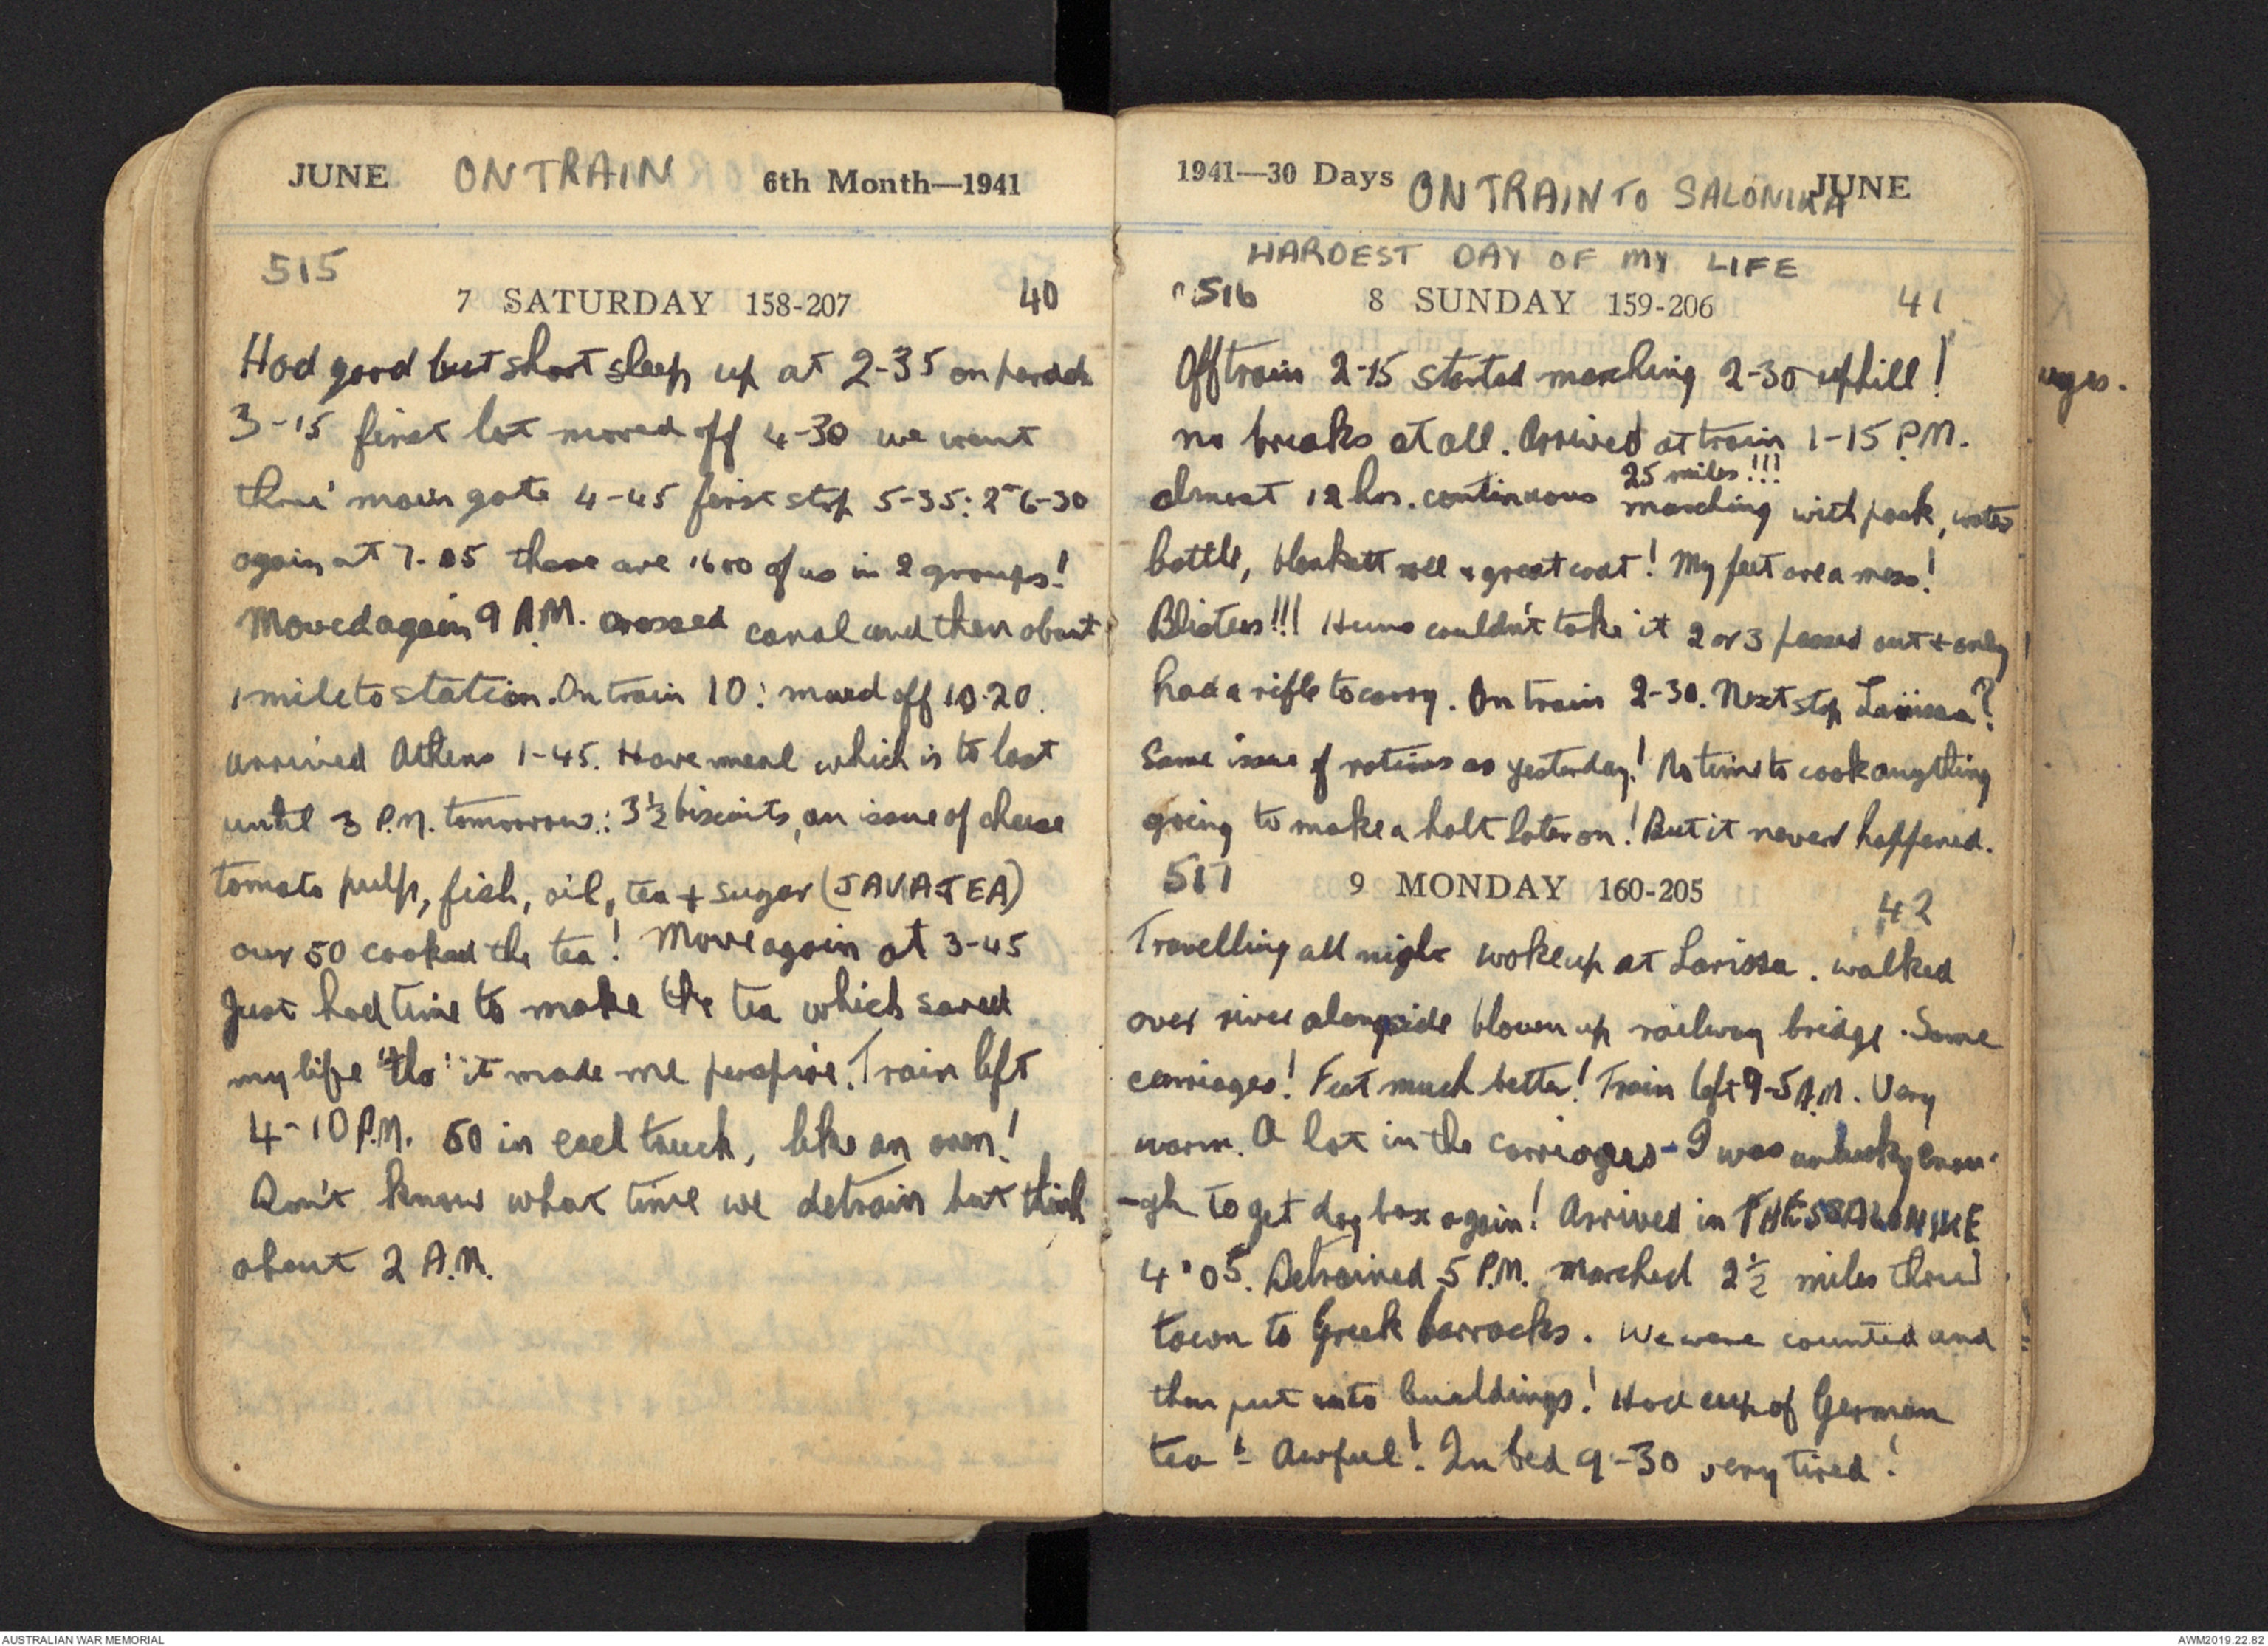 JUNE ON TRAIN 6th Month—1941
515
7 SATURDAY 158-207 40
Had good but short sleep up at 2-35 on parade
3-15 first lot moved off 4-30 we went
thru' main gate 4-45 first stop 5-35: 2nd 6-30
again at 7.05 there are 1600 of us in 2 groups!
Moved again 9 A.M. crossed canal and then about
1 mile to station. On train 10: moved off 10.20.
arrived Athens 1-45. Have meal which is to last
until 3 P.M. tomorrow.: 3½ biscuits, an issue of cheese
tomato pulp, fish, oil, tea + sugar (JAVA TEA)
our 50 cooked the tea! Move again at 3-45
Just had time to make the tea which saved
my life 'tho' it made me perspire. Train left
4-10 P.M. 50 in each truck, like an oven!
Don't know what time we detrain but think
about 2 A.M.
1941—30 Days ON TRAIN TO SALONIKA JUNE
HARDEST DAY OF MY LIFE
516 8 SUNDAY 159-206 41
Off train 2-15 started marching 2-30 uphill!
no breaks at all. Arrived at train 1-15 P.M.
25 miles!!!
almost 12 hrs. continuous marching with pack, water
bottle, blankett roll + great coat! My feet are a mess!
Blisters!!! Huns couldn't take it 2 or 3 passed out + only
had a rifle to carry. On train 2-30. Next stop Larissa?
Same issue of rations as yesterday! No time to cook anything
going to make a halt later on! But it never happened.
517 9 MONDAY 160-205
42
Travelling all night woke up at Larissa. walked
over river alongside blown up railway bridge. Some
carriages! Feet much better! Train left 9-5 A.M. Very
warm. A lot in the carriages - I was unlucky enou-
-gh to get dog box again! Arrived in THESSALONIKE
4.05. Detrained 5 P.M. marched 2½ miles thru'
town to Greek barracks. We were counted and
then put into buildings! Had cup of German
tea! Awful! In bed 9-30 very tired!
AUSTRALIAN WAR MEMORIAL
AWM2019.22.82